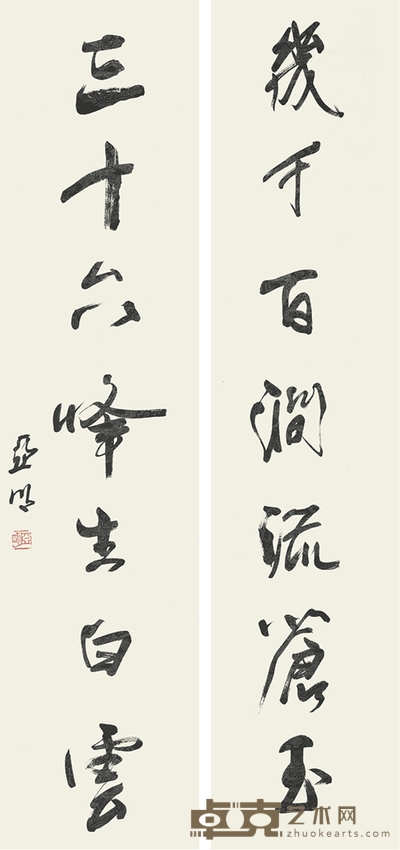 幾千百澗流蒼玉
三十六峰生白雲
亞明
卓克艺术网
zhuokearts.com